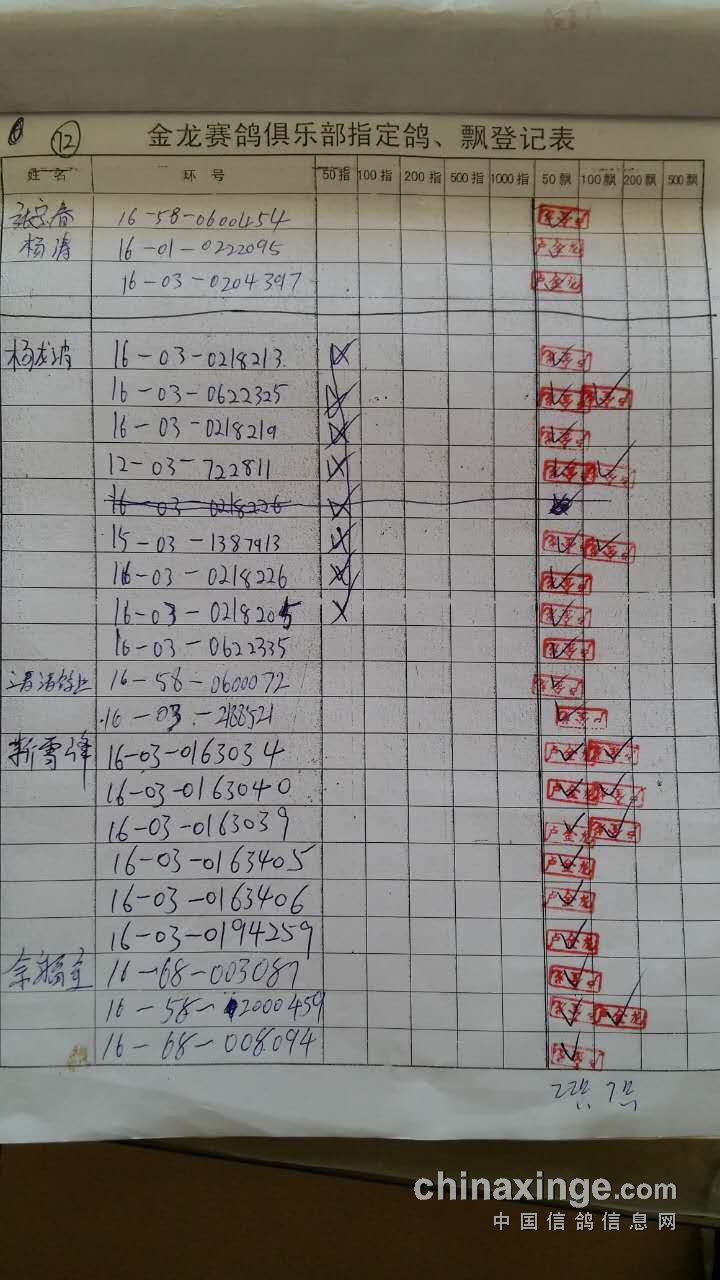 12
金龙赛鸽俱乐部指定鸽、飘登记表
姓名 环号 50指 100指 200指 500指 1000指 50飘 100飘 200飘 500飘
16-58-0600454
杨涛 16-01-0222095 卢金龙
16-03-0204397 卢金龙
杨龙波 16-03-0218213
16-03-0622325
16-03-0218219
12-03-722811
16-03-0218226
15-03-1387913
16-03-0218226
16-03-0218205
16-03-0622335
16-58-0600072
16-03-2188521
靳雪峰 16-03-0163034 卢金龙
16-03-0163040 卢金龙
16-03-0163039 卢金龙
16-03-0163405 卢金龙
16-03-0163406 卢金龙
16-03-0194259 卢金龙
16-68-003087
16-58-2000459 卢金龙
16-68-008094
chinaxinge.com
中国信鸽信息网